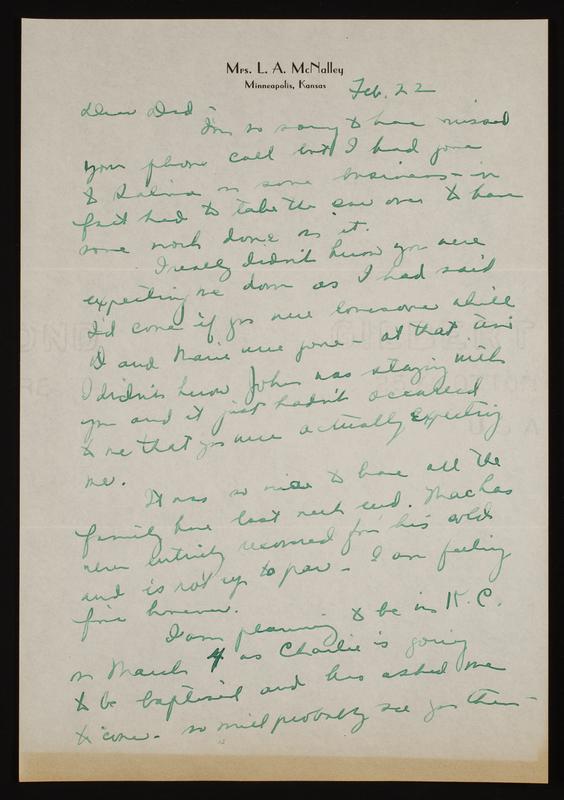 Mrs. L. A. McNalley
Minneapolis, Kansas
Feb. 22
Dear Dad -
I'm so sorry to have missed
your phone call but I had gone
to Salina on some business - in
fact had to take the car over to have
some work done on it.
I really didn't know you were
expecting me down as I had said
I'd come if you were lonesome while
D and Marie were gone - at that time
I didn't know John was staying with
you and it just hadn't occurred
to me that you were actually expecting
me.
It was so nice to have all the
family here last week end. Mac has
never entirely recovered from his cold
and is not up to par - I am feeling
fine however.
I am planning to be in K.C.
on March 4 as Charlie is going
to be baptised and has asked me
to come - so will probably see you then -